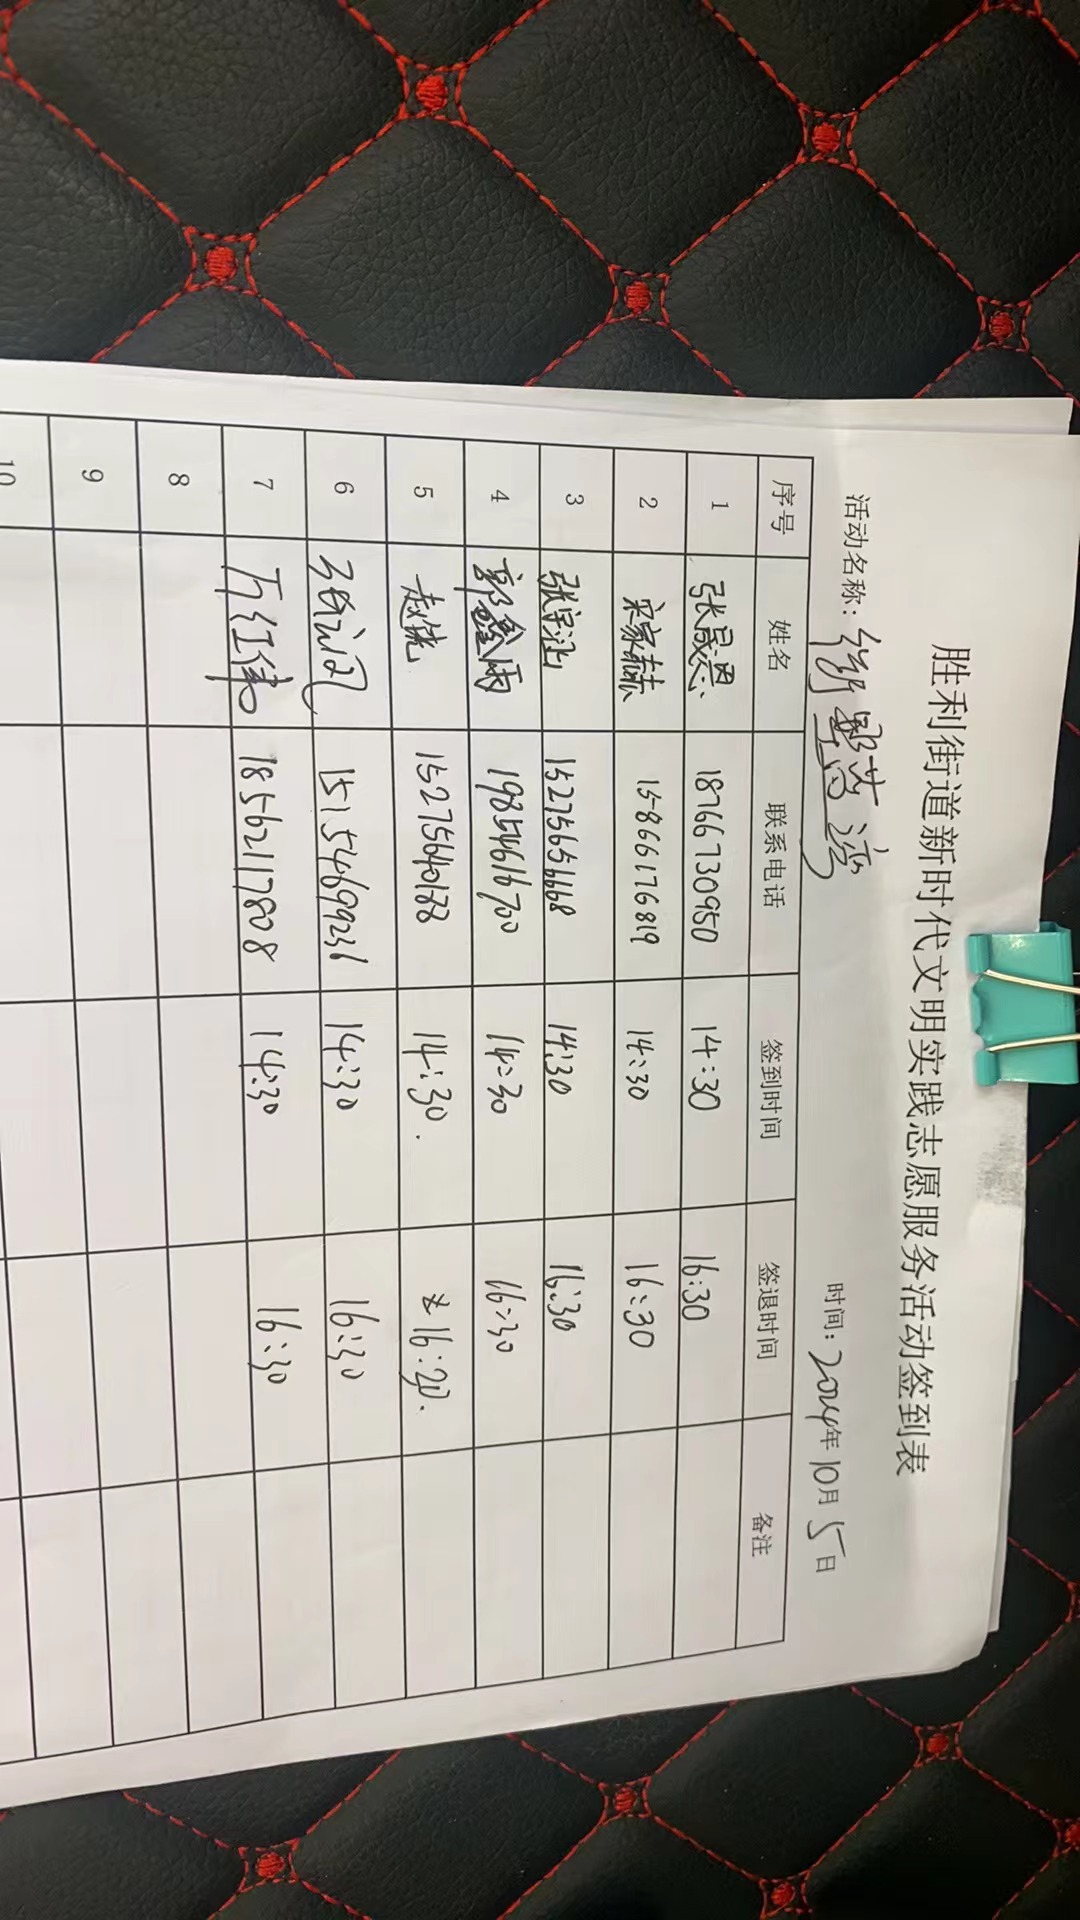 胜利街道新时代文明实践志愿服务活动签到表
活动名称： 时间：2024年10月5日
序号 姓名 联系电话 签到时间 签退时间 备注
1 张晟恩 18766730950 14:30 16:30
2 宋家赫 15866176819 14:30 16:30
3 张宇 15275656668 14:30 16:30
4 郭鑫雨 19854616700 14:30 16:30
5 赵 15275640188 14:30. 16:20.
6 15154699236 14:30 16:30
7 万红伟 18562117808 14:30 16:30
8
9
10